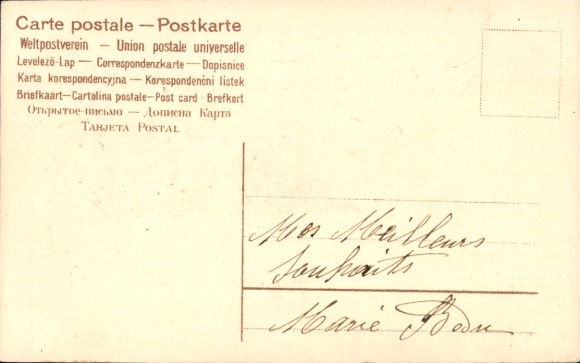 Carte postale — Postkarte
Weltpostverein — Union postale universelle
Levelező-Lap — Correspondenzkarte — Dopisnice
Karta korespondencyjna — Korespondenční listek
Briefkaart — Cartolina postale — Post card - Brefkort
Открытое-письмо — Дописна Карта
TARJETA POSTAL
Mes Meilleurs
Souhaits
Marie